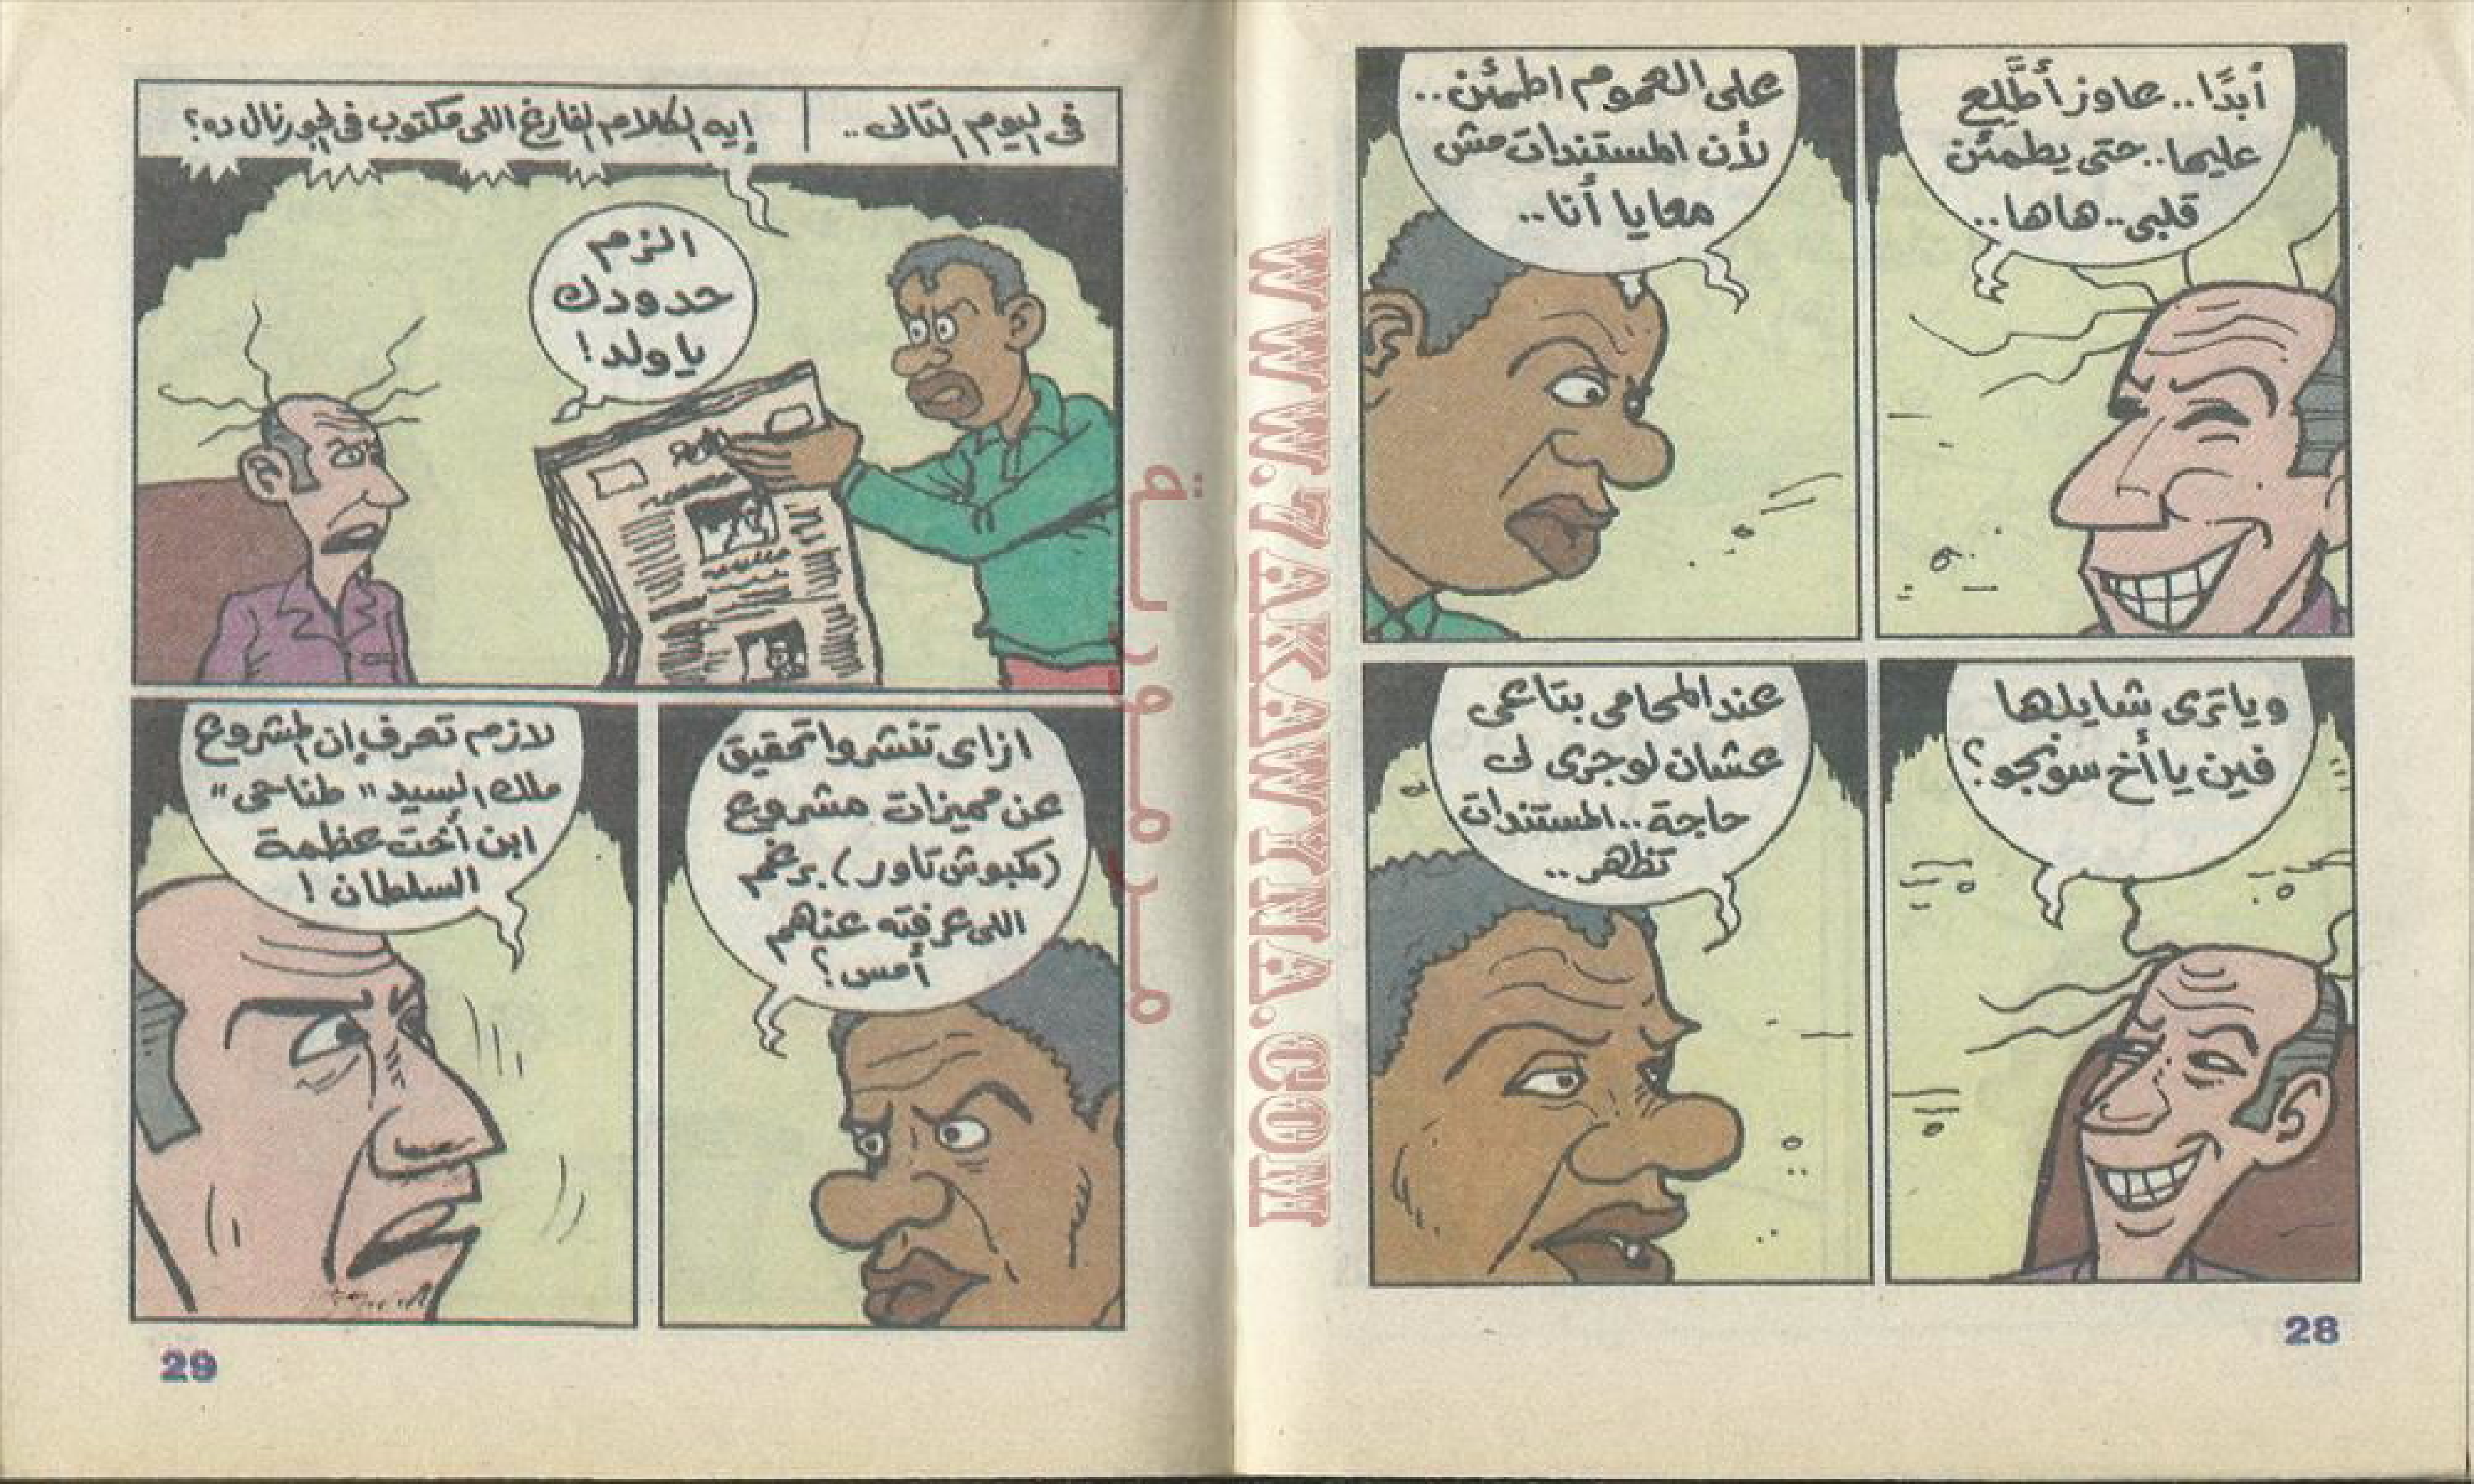 أبدًا.. عاوز أطَّلع
عليها.. حتى يطمئن
قلبى.. هاها..
على العموم اطمئن..
لأن المستندات مش
معايا أنا..
وياترى شايلها
فين يا أخ سونجو؟
عند المحامى بتاعى
عشان لو جرى لى
حاجة.. المستندات
تظهر..
28
WWW.ZAKAWYNA.COM
فى اليوم التالى..
إيه الكلام الفارغ اللى مكتوب فى الجورنال ده؟
الزم
حدودك
يا ولد!
ازاى تنشروا تحقيق
عن مميزات مشروع
(كمبوش تاور) برغم
اللى عرفته عنهم
أمس؟
لازم تعرف إن المشروع
ملك السيد "طناحى"
ابن أخت عظمة
السلطان!
29